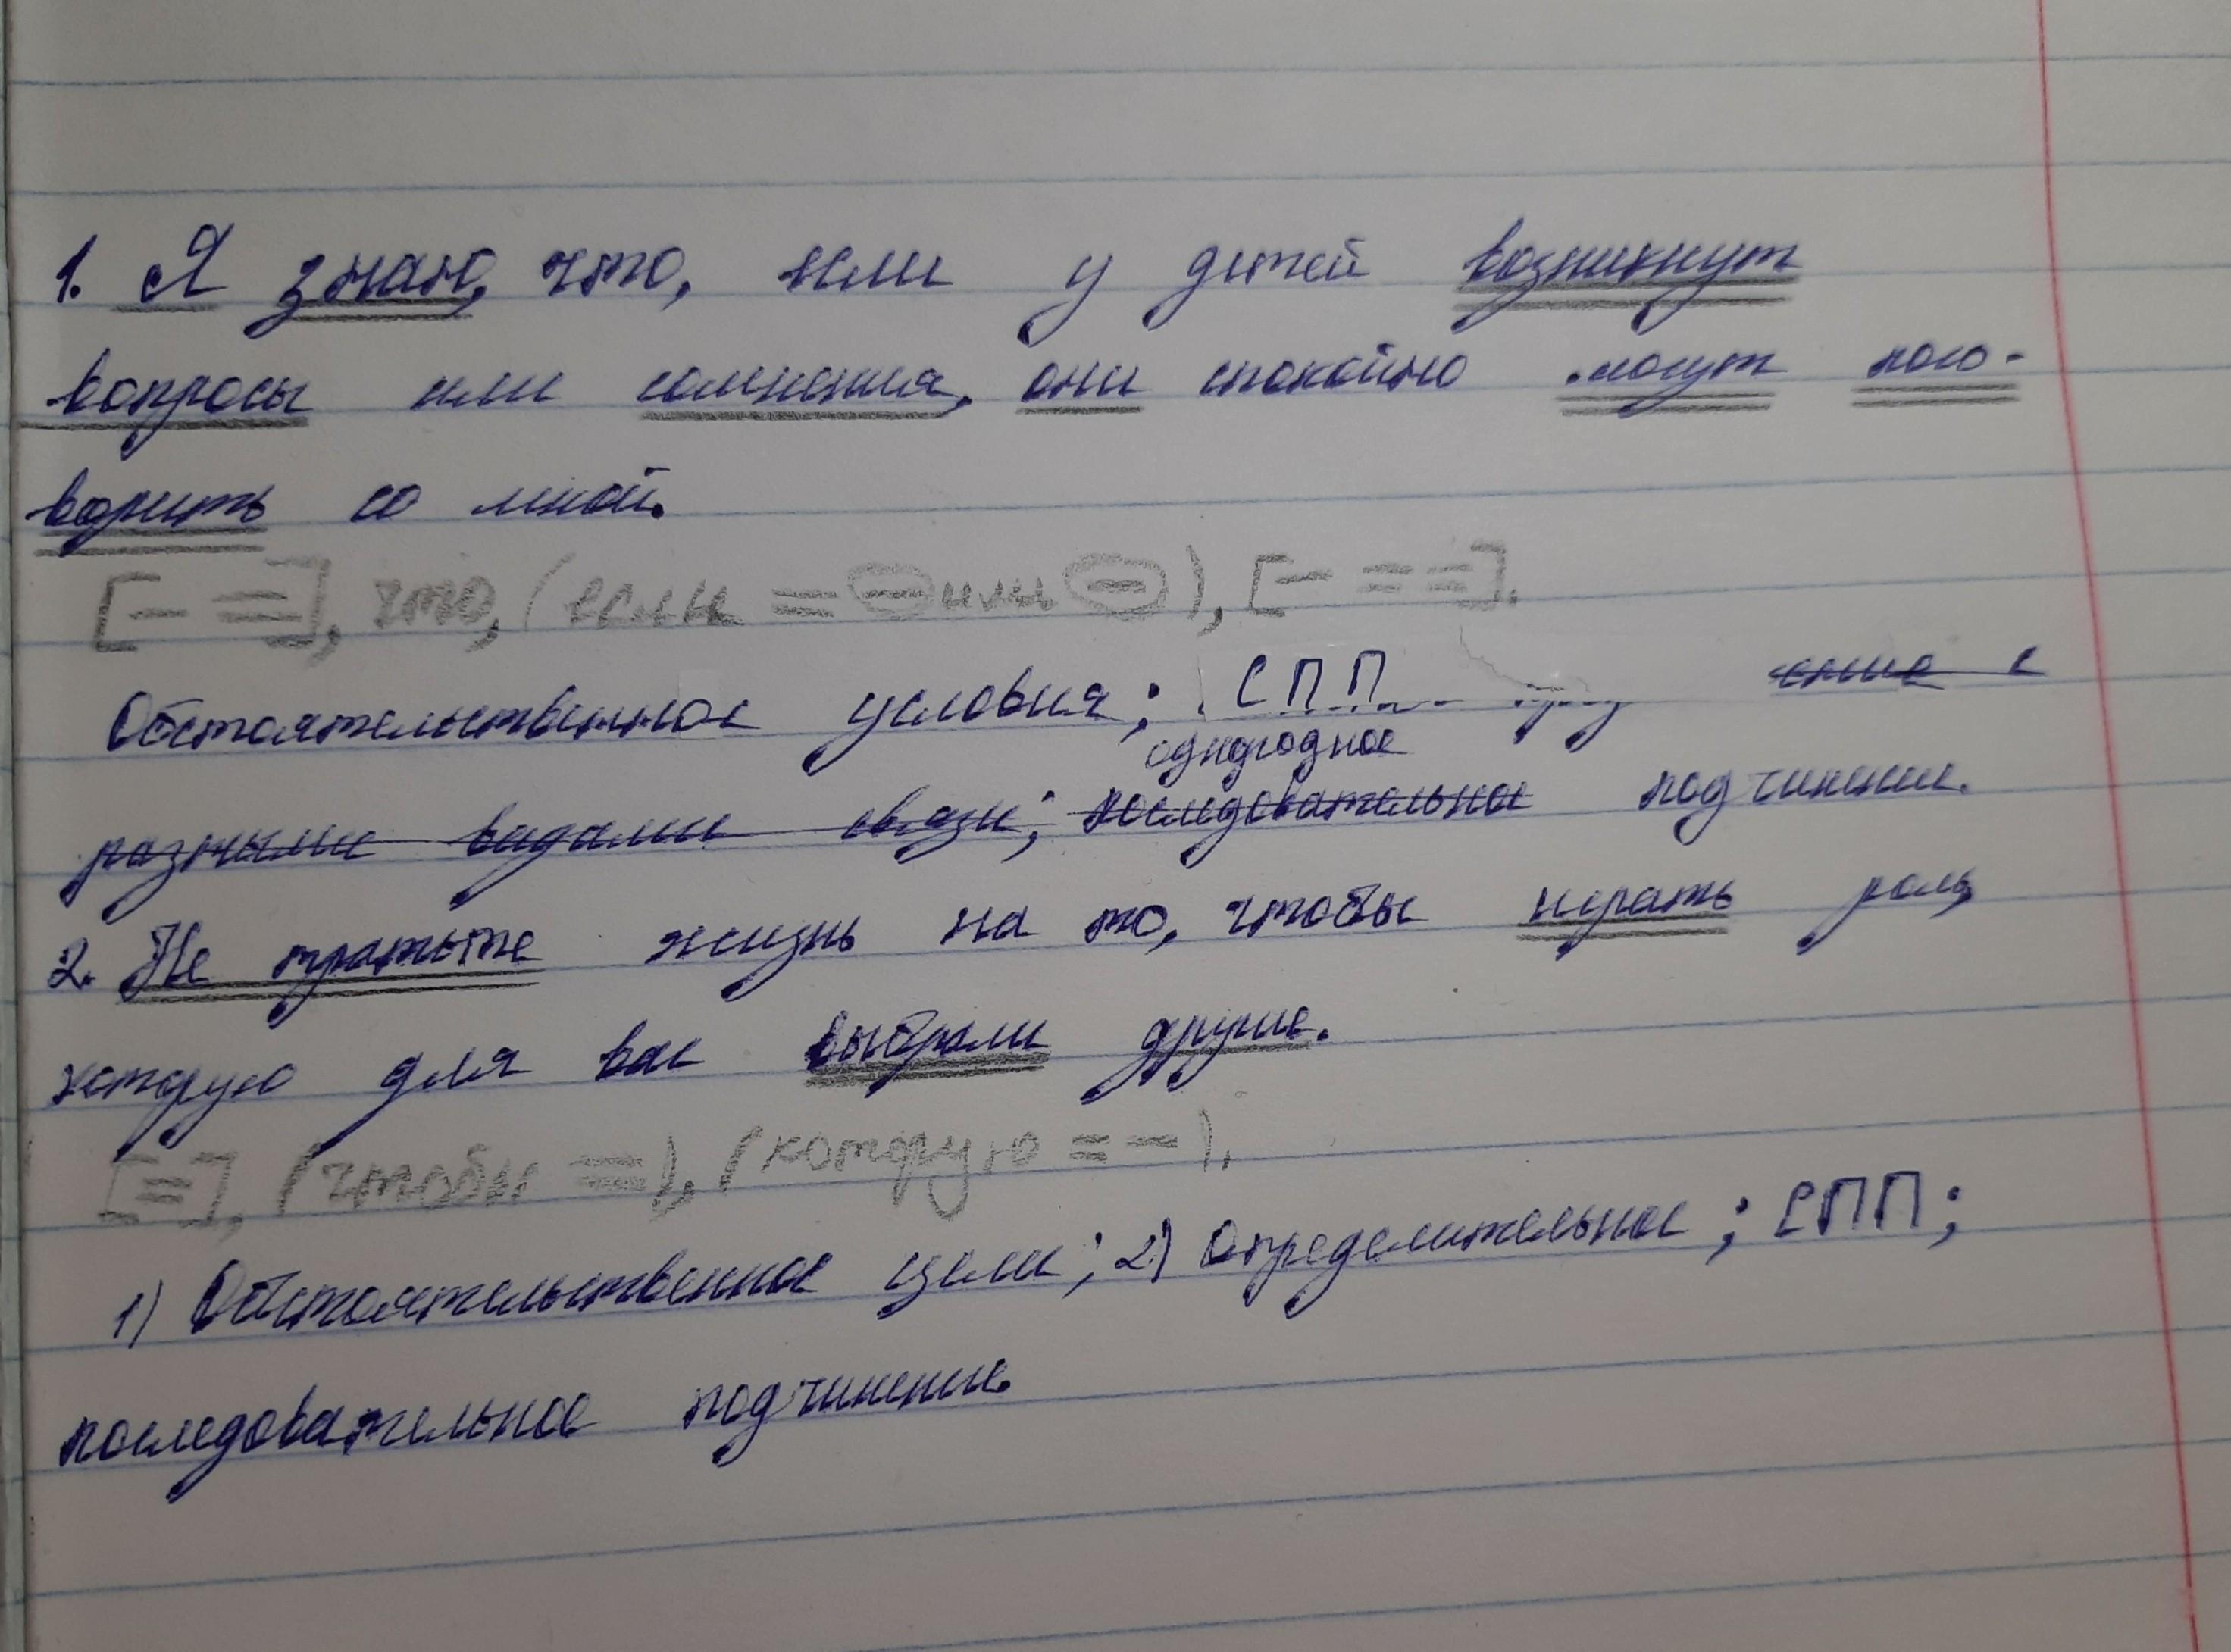 1. Я знаю, что, если у детей возникнут
вопросы или сомнения, они спокойно могут пого-
ворить со мной.
[— =], что, (если = — или —), [— = =].
Обстоятельственное условия; СПП ение с
однородное
разными видами связи; последовательное подчинение.
2. Не тратьте жизнь на то, чтобы играть роль,
которую для вас выбрали другие.
[=], (чтобы =), (которую = —).
1) Обстоятельственное цели; 2) Определительное; СПП;
последовательное подчинение.